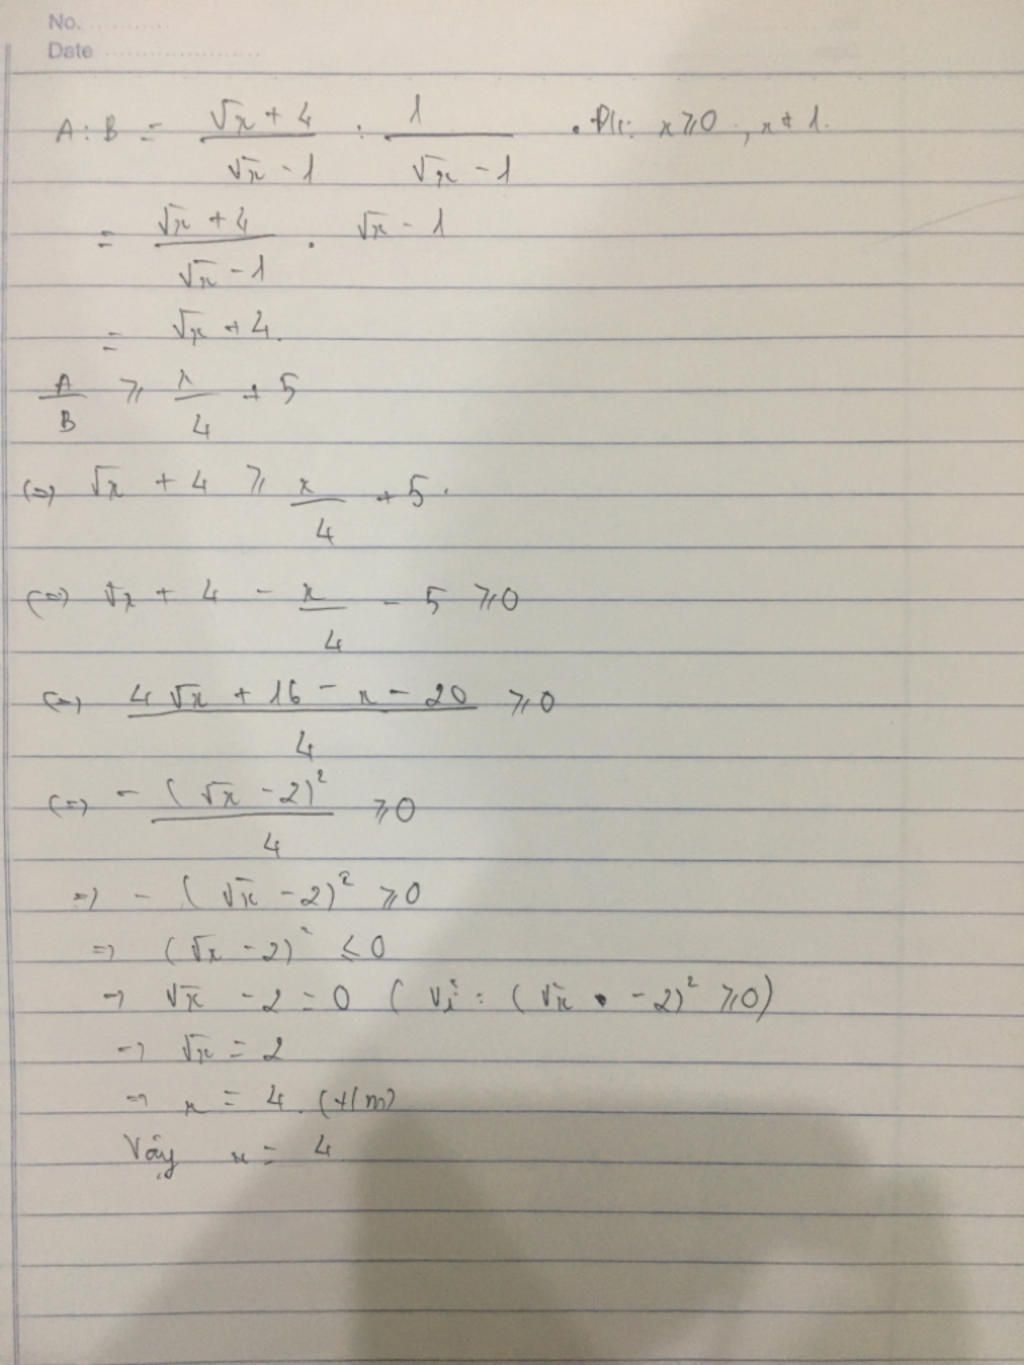 No.
Date
A : B = (√x + 4)/(√x - 1) : 1/(√x - 1) . Đk: x ⩾ 0 ; x ≠ 1.
= (√x + 4)/(√x - 1) . √x - 1
= √x + 4.
A/B ⩾ x/4 + 5
(=) √x + 4 ⩾ x/4 + 5.
(=) √x + 4 - x/4 - 5 ⩾ 0
(=) (4√x + 16 - x - 20)/4 ⩾ 0
(=) - (√x - 2)²/4 ⩾ 0
=) - (√x - 2)² ⩾ 0
=) (√x - 2)² ≤ 0
=) √x - 2 = 0 ( Vì : (√x - 2)² ⩾ 0)
=) √x = 2
=) x = 4. (t/m)
Vậy x = 4